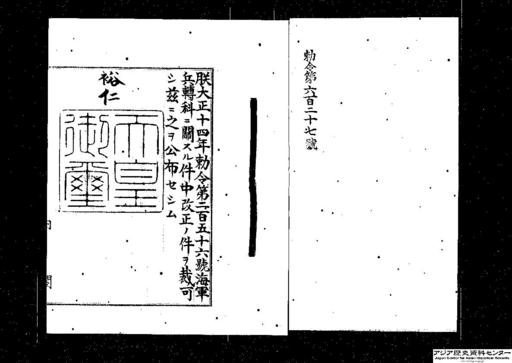 勅令第六百二十七號
朕大正十四年勅令第二百五十六號海軍
兵轉科ニ關スル件中改正ノ件ヲ裁可
シ茲ニ之ヲ公布セシム
裕仁
天皇
御璽
内閣
アジア歴史資料センター
Japan Center for Asian Historical Records